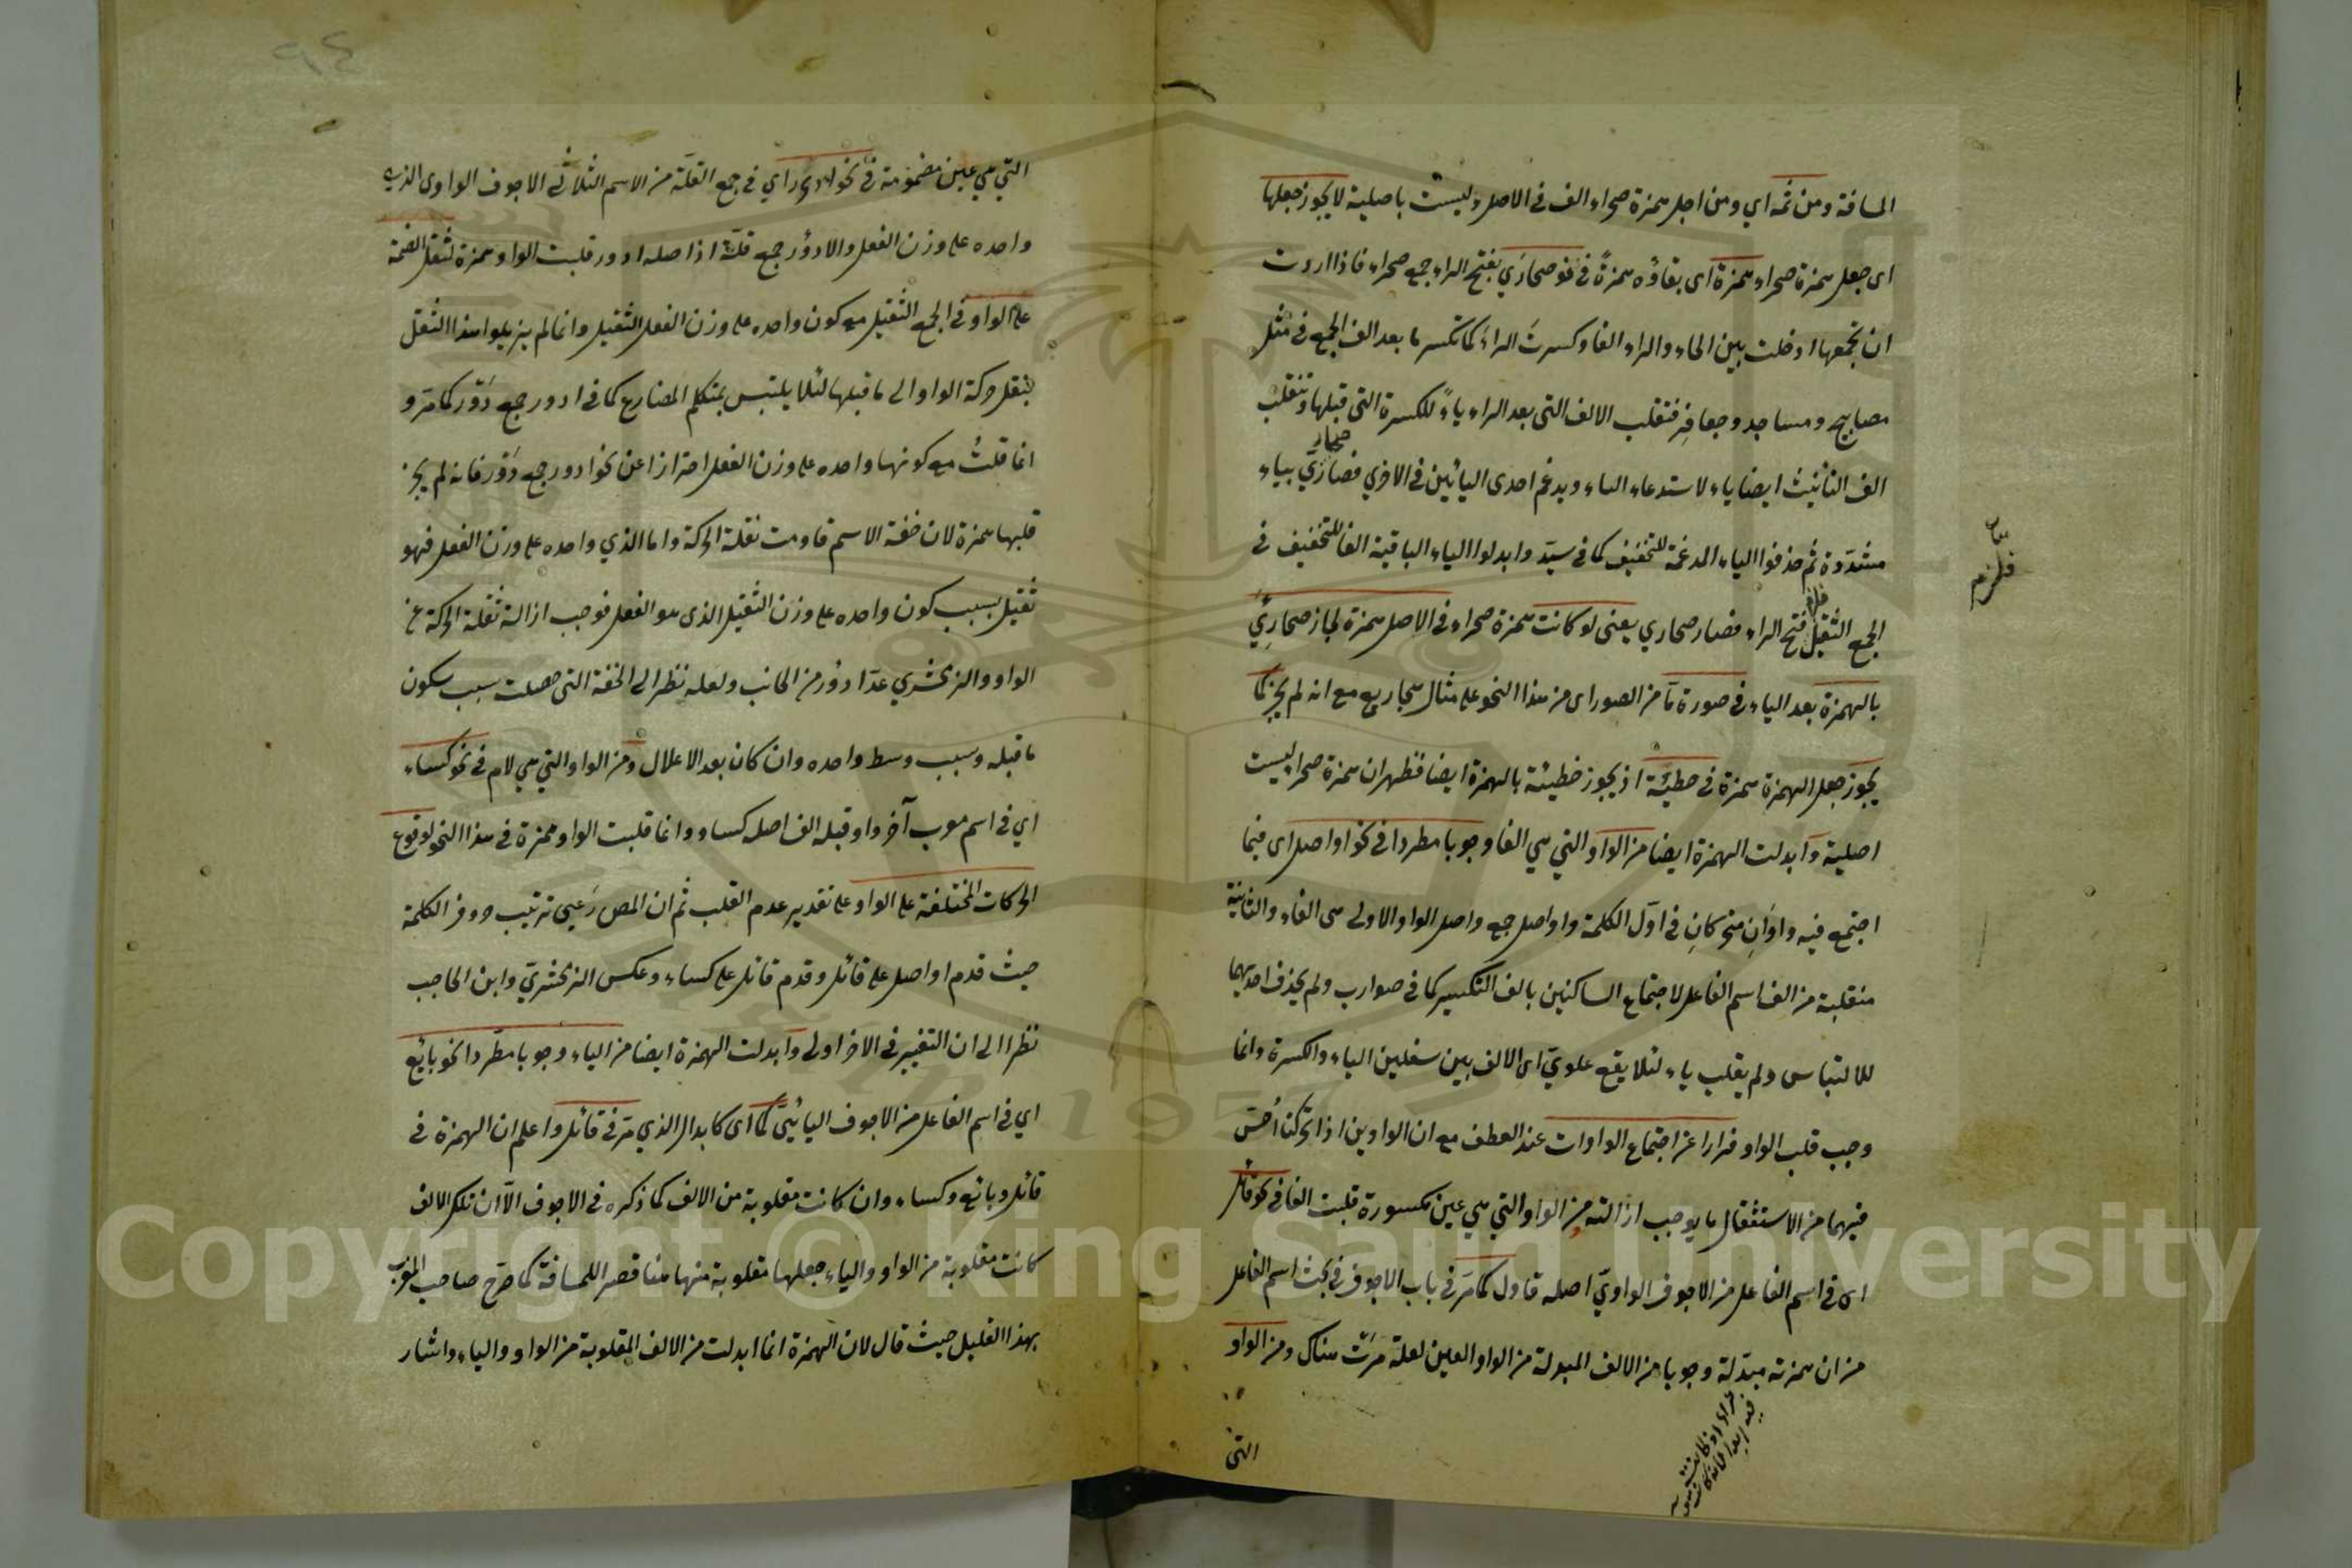 المسافة ومن ثمه اي ومن اجل همزة صحراء الف في الاصل وليست باصلية لا يجوز جعلها
اى جعل همزة صحراء همزة اى بقاؤه همزةً في نحو صحارَي بفتح الراء جمع صحراء فاذا اردت
ان تجمعها ادخلت بين الحاء والراء الفا وكسرتَ الراءَ كما تكسر ما بعد الف الجمع في مثل
مصابيح ومساجد وجعافر فتقلب الالف التى بعد الراء ياءً للكسرة التى قبلها وتنقلب
الف التانيث ايضا ياء لاستدعاء الياء ويدغم احدى اليائين في الاخري فصار صحاريّ بياء
مشدّدة ثم حذفوا الياء المدغمة للتخفيف كما في سيّد وابدلوا الياء الباقية الفا للتخفيف في
الجمع الثقيل فتح الراء فصار صحاري يعنى لو كانت همزة صحراء في الاصل همزة لجاز صحارِيُ
بالهمزة بعد الياء في صورة مّا من الصور اى من هذا النحو على مثال صحاريع مع انه لم يجز كما
يجوز جعل الهمزة همزة في خطيّة اذ يجوز خطيئة بالهمزة ايضا فظهر ان همزة صحرا ليست
اصلية وابدلت الهمزة ايضا من الواو التي هي الفا وجوبا مطردا في نحو اواصل اى فيما
اجتمع فيه واوَانِ متحركانِ في اوّل الكلمة واواصل جمع واصل الواو الاولى هى الفاء والثانية
منقلبة من الف اسم الفاعل لاجتماع الساكنين بالف التكسير كما في ضوارب ولم يحذف احديهما
للالتباس ولم يقلب ياء لئلا يقع علويّ اى الالف بين سفلين الياء والكسرة وانما
وجب قلب الواو فرارا عن اجتماع الواوات عند العطف مع ان الواوين اذا تحركتا أخسّ
فيهما من الاستثقال ما يوجب ازالته ومن الواو التي هي عين مكسورة قلبت الفا في نحو قائل
اى في اسم الفاعل من الاجوف الواويّ اصله قاول كما مَر في باب الاجوف في بحث اسم الفاعل
من ان همزته مبدّلة وجوبا من الالف المبدلة من الواو العين لعلة مَرت هناك ومن الواو
التى
التي هي عين مضمومة في نحو ادؤر اي في جمع القلّة من الاسم الثلاثي الاجوف الواوى الذي
واحده على وزن الفعل والادؤر جمع قلّة اذ اصله ادور قلبت الواو همزة لثقل الضمة
على الواو في الجمع الثقيل مع كون واحده على وزن الفعل الثقيل وانما لم يزيلوا هذا الثقل
بنقل حركة الواو الى ما قبلها لئلا يلتبس بمتكلم المضارع كما في ادور جمع دَوْر كما مَر و
انما قلتُ مع كونها واحده على وزن الفعل احترازا عن نحو ادور جمع دَوْر فانه لم يجز
قلبها همزة لان خفة الاسم قاومت ثقلة الحركة واما الذي واحده على وزن الفعل فهو
ثقيل بسبب كون واحده على وزن الثقيل الذى هو الفعل فوجب ازالة ثقلة الحركة عن
الواو والزمخشري عدّ ادؤر من الجانب ولعله نظر الى الخفة التى حصلت بسبب سكون
ما قبله وبسبب وسط واحده وان كان بعد الاعلال ومن الواو التي هي لام في نحو كساء
اي في اسم معرب آخره واو قبله الف اصله كساو وانما قلبت الواو همزة في هذا النحو لوقوع
الحركات المختلفة على الواو على تقدير عدم القلب ثم ان المص رَعي ترتيب حروف الكلمة
حيث قدم اواصل على قائل وقدم قائل على كساء وعكس الزمخشريّ وابن الحاجب
نظرا الى ان التغيير في الاخر اولى وابدلت الهمزة ايضا من الياء وجوبا مطّردا نحو بائع
اي في اسم الفاعل من الاجوف اليائيّ كما اى كابدال الذي مَر في قائل واعلم ان الهمزة في
قائل وبائع وكساء وان كانت مقلوبة من الالف كما ذكره في الاجوف الّا ان تلك الالف
كانت مقلوبة من الواو والياء جعلها مقلوبة منها هنا قصر اللمسافة كما صَرح صاحب المغرب
بهذا القليل حيث قال لان الهمزة انما ابدلت من الالف المقلوبة من الواو والياء واشار
Copyright © King Saud University